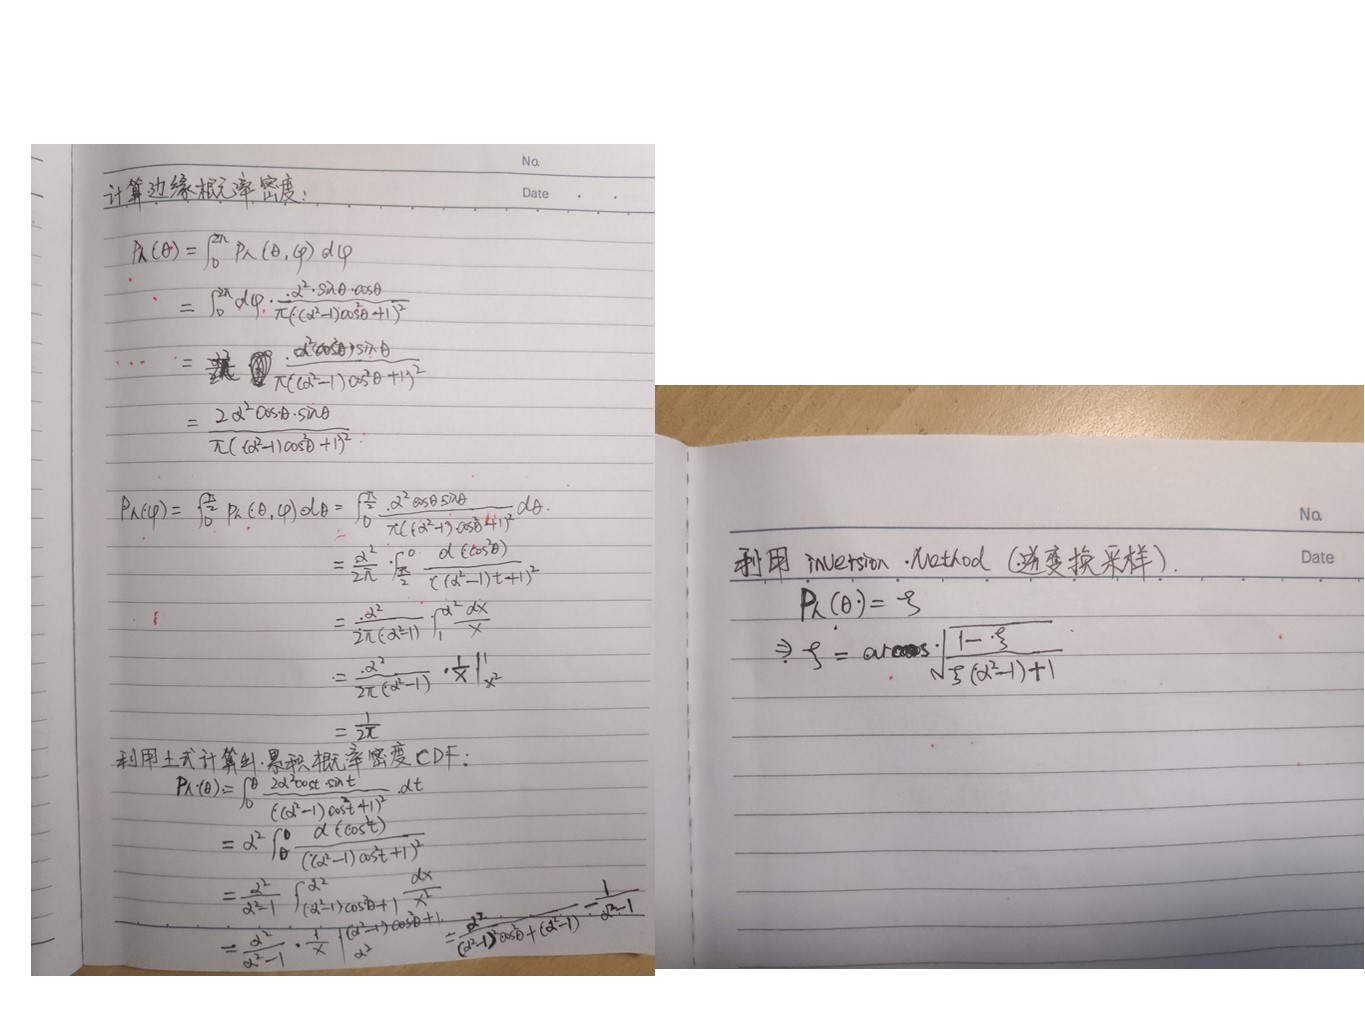 No.
Date
计算边缘概率密度:
P_h(θ) = ∫_0^{2π} P_h(θ,φ) dφ
= ∫_0^{2π} dφ · α²·sinθ·cosθ / π((α²-1)cos²θ+1)²
= α²cosθ·sinθ / π((α²-1)cos²θ+1)²
= 2α²cosθ·sinθ / π((α²-1)cos²θ+1)²
P_h(φ) = ∫_0^{π/2} P_h(θ,φ) dθ = ∫_0^{π/2} α²cosθsinθ / π((α²-1)·cos²θ+1)² dθ.
= α²/2π · ∫_{π/2}^0 d(cos²θ) / ((α²-1)t+1)²
= α²/2π(α²-1) ∫_1^{α²} dx/x
= α²/2π(α²-1) · 1/x |_{x²}^1
= 1/2π
利用上式计算出累积概率密度CDF:
P_h(θ) = ∫_0^θ 2α²cost·sint / ((α²-1)cos²t+1)² dt
= α² ∫_θ^0 d(cos²t) / ((α²-1)cos²t+1)²
= α²/α²-1 ∫_{(α²-1)cos²θ+1}^{α²} dx/x²
= α²/α²-1 · 1/x |_{α²}^{(α²-1)cos²θ+1} = α²/(α²-1)²cos²θ+(α²-1) - 1/α²-1
No.
Date
利用 inversion Method (逆变换采样).
P_h(θ) = ξ
⇒ ξ = arccos √(1-ξ / ξ(α²-1)+1)